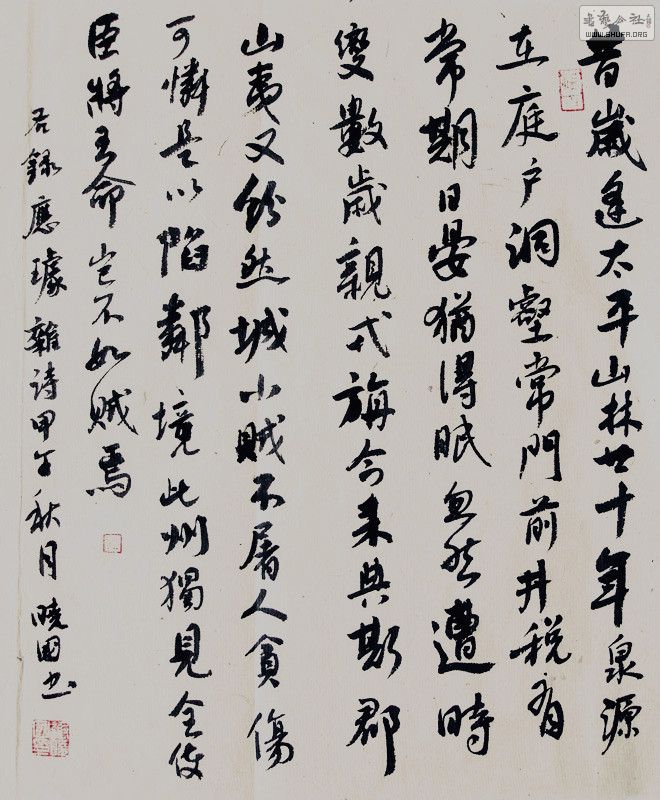 昔歲逢太平山林廿十年泉源
在庭户洞壑常門前井税有
常期日晏猶得眠忽然遭時
變數歲親戎旃今来典斯郡
山夷又紛然城小贼不屠人貧傷
可憐是以陷鄰境此州獨見全使
臣將王命豈不如贼焉
右録應璩雜詩甲午秋月曉國书
書藝公社
WWW.SHUFA.ORG